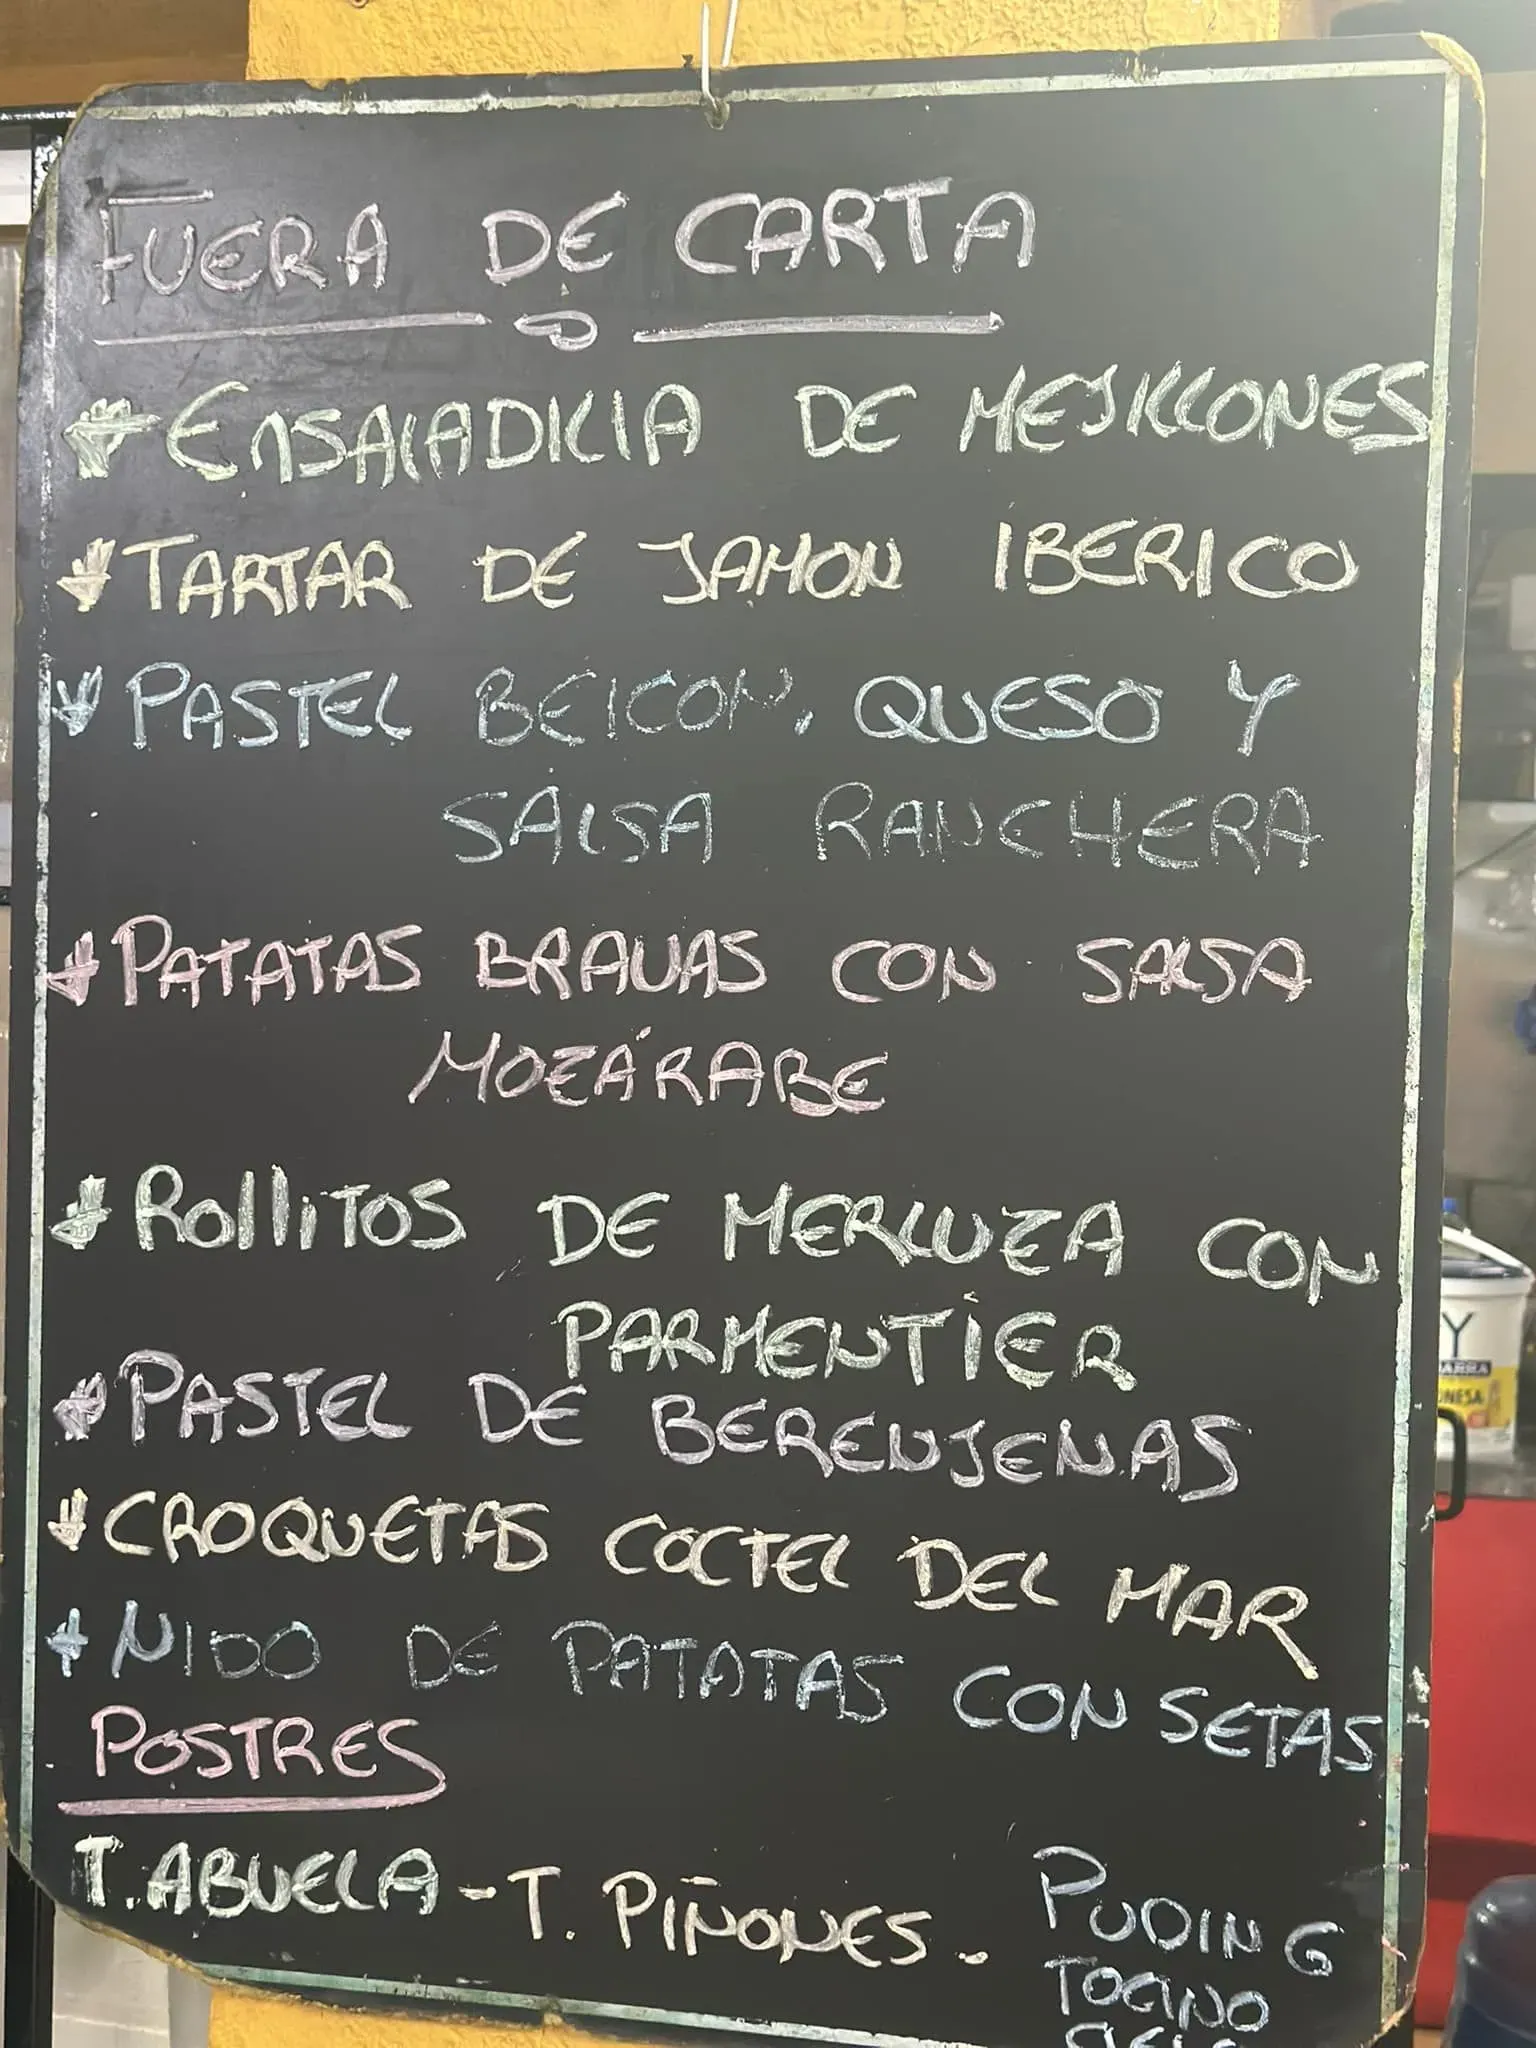 FUERA DE CARTA
ENSALADILLA DE MEJILLONES
TARTAR DE JAMON IBERICO
PASTEL BEICON, QUESO Y
SALSA RANCHERA
PATATAS BRAVAS CON SALSA
MOZÁRABE
ROLLITOS DE MERLUZA CON
PARMENTIER
PASTEL DE BERENJENAS
CROQUETAS COCTEL DEL MAR
NIDO DE PATATAS CON SETAS
POSTRES
T. ABUELA - T. PIÑONES. PUDING
TOCINO
Y